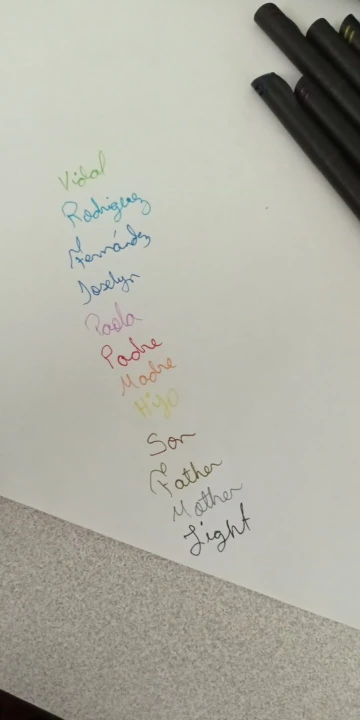 Vidal
Rodriguez
Fernández
Joselyn
Paola
Padre
Madre
Hijo
Son
Father
Mother
Light